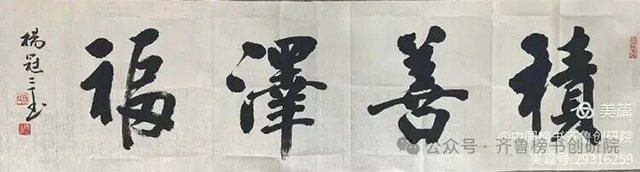 積善澤福
楊冠
美篇
@中国榜书齐鲁创研院
公众号·齐鲁榜书创研院
美篇号:29316259